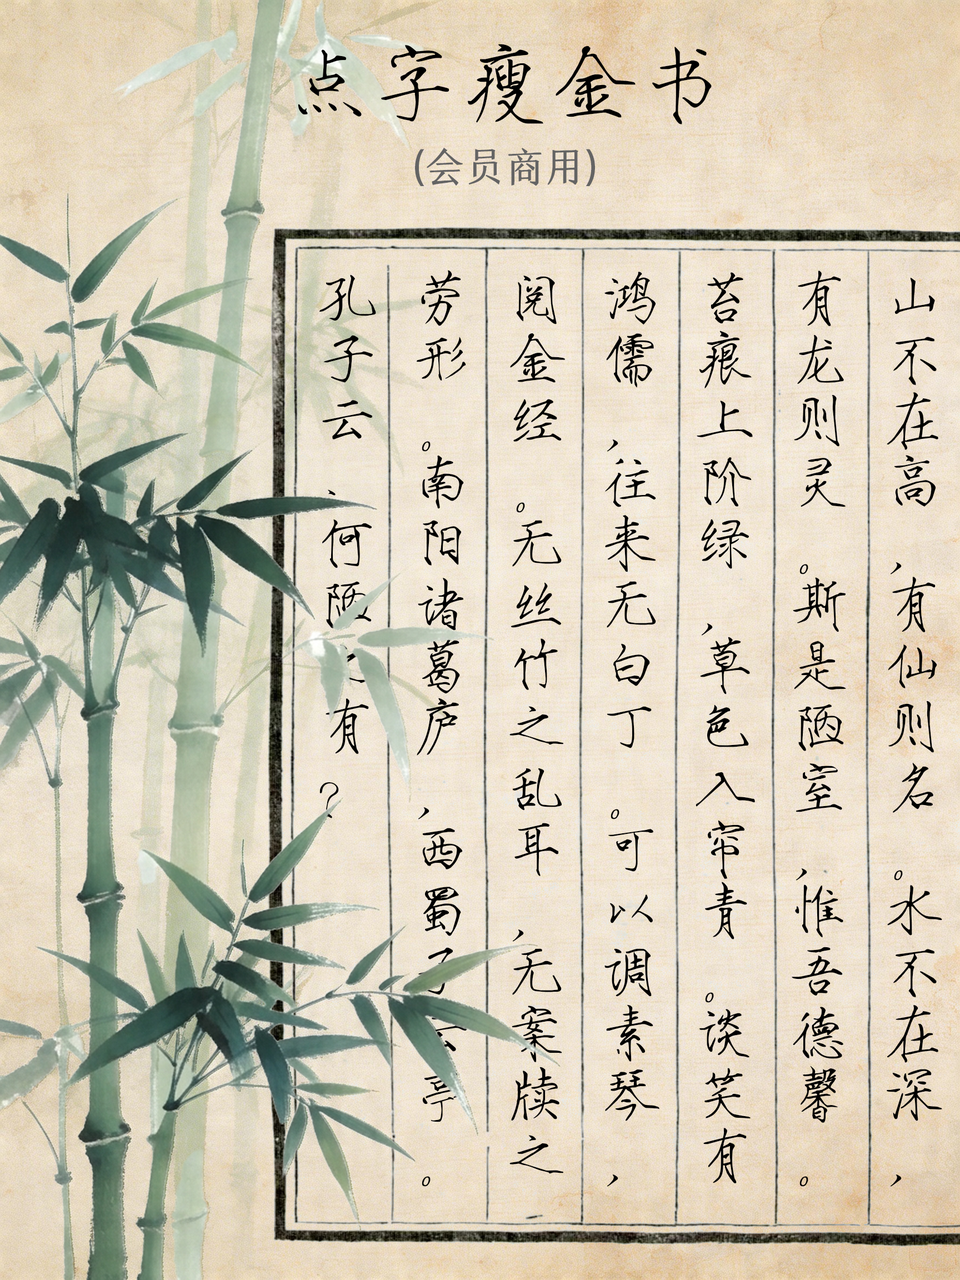 点字瘦金书
(会员商用)
山不在高，有仙则名。水不在深，
有龙则灵。斯是陋室，惟吾德馨。
苔痕上阶绿，草色入帘青。谈笑有
鸿儒，往来无白丁。可以调素琴，
阅金经。无丝竹之乱耳，无案牍之
劳形。南阳诸葛庐，西蜀子云亭。
孔子云：何陋之有？